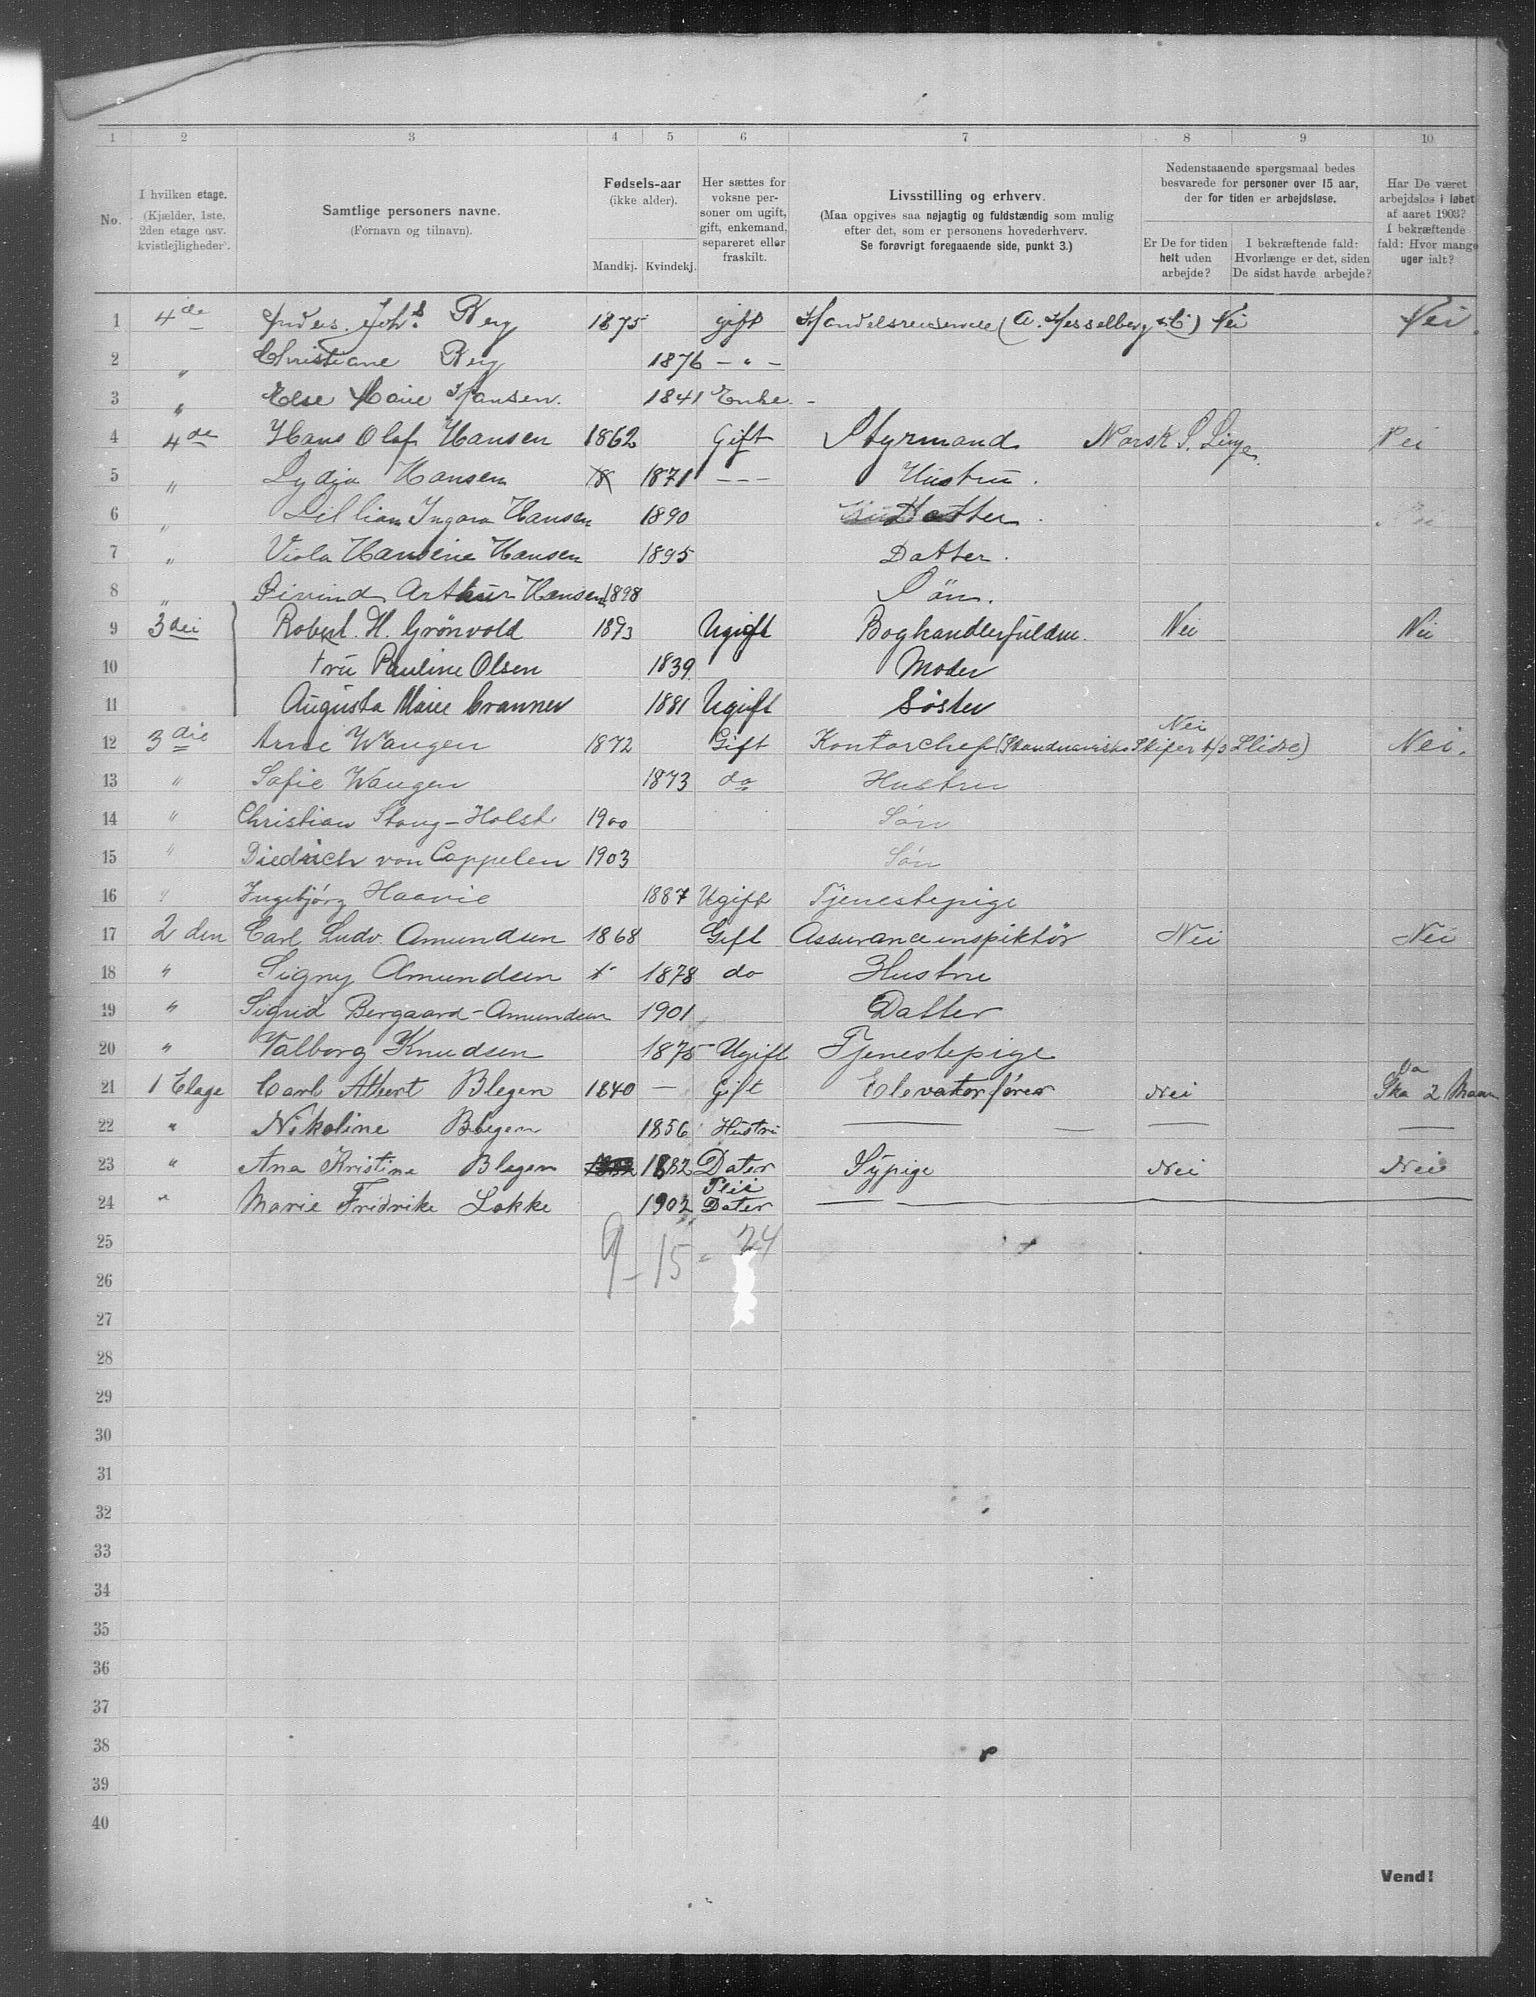 1 2 3 4 5 6 7 8 9 10
No.
I hvilken etage. (Kjælder, 1ste, 2den etage osv. kvistlejligheder).
Samtlige personers navne. (Fornavn og tilnavn).
Fødsels-aar (ikke alder). Mandkj. Kvindekj.
Her sættes for voksne personer om ugift, gift, enkemand, separeret eller fraskilt.
Livsstilling og erhverv. (Maa opgives saa nøjagtig og fuldstændig som mulig efter det, som er personens hovederhverv. Se forøvrigt foregaaende side, punkt 3.)
Nedenstaaende spørgsmaal bedes besvarede for personer over 15 aar, der for tiden er arbejdsløse.
Er De for tiden helt uden arbejde?
I bekræftende fald: Hvorlænge er det, siden De sidst havde arbejde?
Har De været arbejdsløs i løbet af aaret 1903? I bekræftende fald: Hvor mange uger ialt?
1 4de Anders. Johs. Berg 1875 gift Handelsreisende (A. Hesselberg & C) Nei Nei.
2 " Christiane Berg 1876 - " -
3 " Else Marie Hansen. 1841 Enke. -
4 4de Hans Olaf Hansen 1862 Gift Styrmand Norsk S. Linje. Nei
5 " Lydja Hansen 1871 - - - Hustru.
6 " Lillian Ingara Hansen 1890 Datter.
7 " Viola Hansine Hansen 1895 Datter.
8 " Øivind Arthur Hansen 1898 Søn.
9 3dei Robert. H. Grönvold 1873 Ugift Boghandlerfuldm. Nei Nei
10 Fru Pauline Olsen 1839 Moder
11 Augusta Marie Cranner 1881 Ugift Söster
12 3die Arne Waugen 1872 Gift Kontorchef (Skandinaviske Skifer b/s Slidre) Nei Nei.
13 " Sofie Waugen 1873 do Hustru
14 " Christian Stang-Holst 1900 Søn
15 " Diedrich von Cappelen 1903 Søn
16 " Ingebjørg Haavie 1887 Ugift Tjenestepige
17 2den Carl Ludv. Amundsen 1868 Gift Assuranceinspiktör Nei Nei
18 " Signy Amundsen 1878 do Hustru
19 " Sigrid Bergaard-Amundsen 1901 Datter
20 " Valborg Knudsen 1875 Ugift Tjenestepige
21 1 Etage Carl Albert Blegen 1840 — Gift Elevatorfører Nei Ja
22 " Nikoline Blegen 1856 Hustru — — — —
23 " Ana Kristine Blegen 1882 Dater Sypige Nei Nei
24 " Marie Fridrike Lokke 1902 Plei Dater —
25 9 - 15 = 24
26
27
28
29
30
31
32
33
34
35
36
37
38
39
40
Vend!